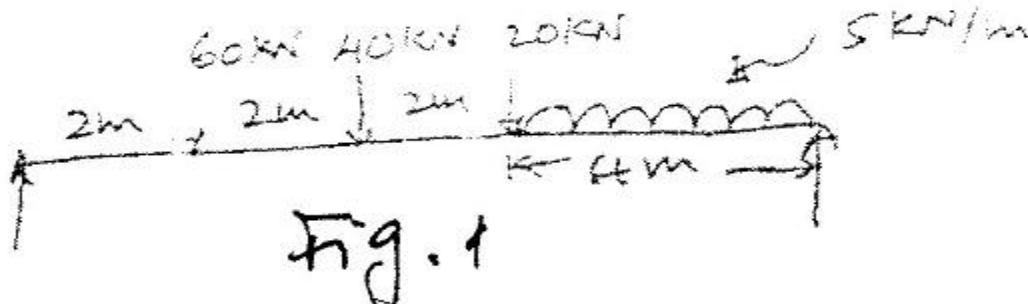 60KN 40KN 20KN 5KN/m
2m 2m 2m
4m
Fig. 1